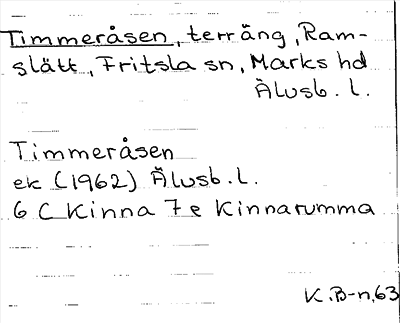 Timmeråsen, terräng, Ram-
slätt, Fritsla sn, Marks hd
Älvsb. l.
Timmeråsen
ek (1962) Älvsb. l.
6 C Kinna 7e Kinnarumma
K.B-n, 63